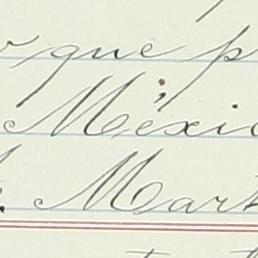 que p
Méxic
Mart